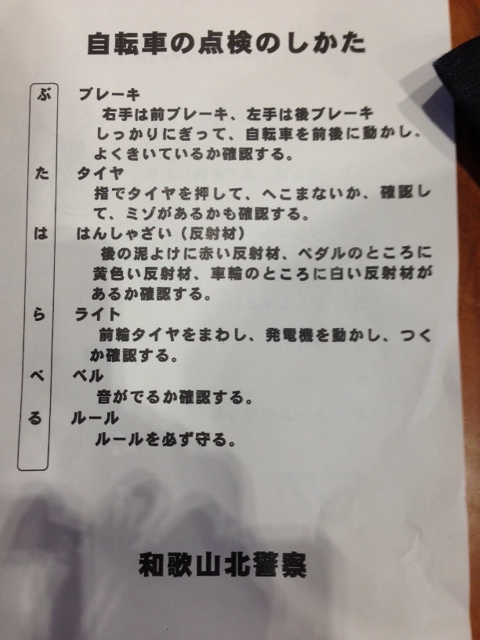 自転車の点検のしかた
ぶ ブレーキ
右手は前ブレーキ、左手は後ブレーキ
しっかりにぎって、自転車を前後に動かし、
よくきいているか確認する。
た タイヤ
指でタイヤを押して、へこまないか、確認し
て、ミゾがあるかも確認する。
は はんしゃざい（反射材）
後の泥よけに赤い反射材、ペダルのところに
黄色い反射材、車輪のところに白い反射材が
あるか確認する。
ら ライト
前輪タイヤをまわし、発電機を動かし、つく
か確認する。
べ ベル
音がでるか確認する。
る ルール
ルールを必ず守る。
和歌山北警察